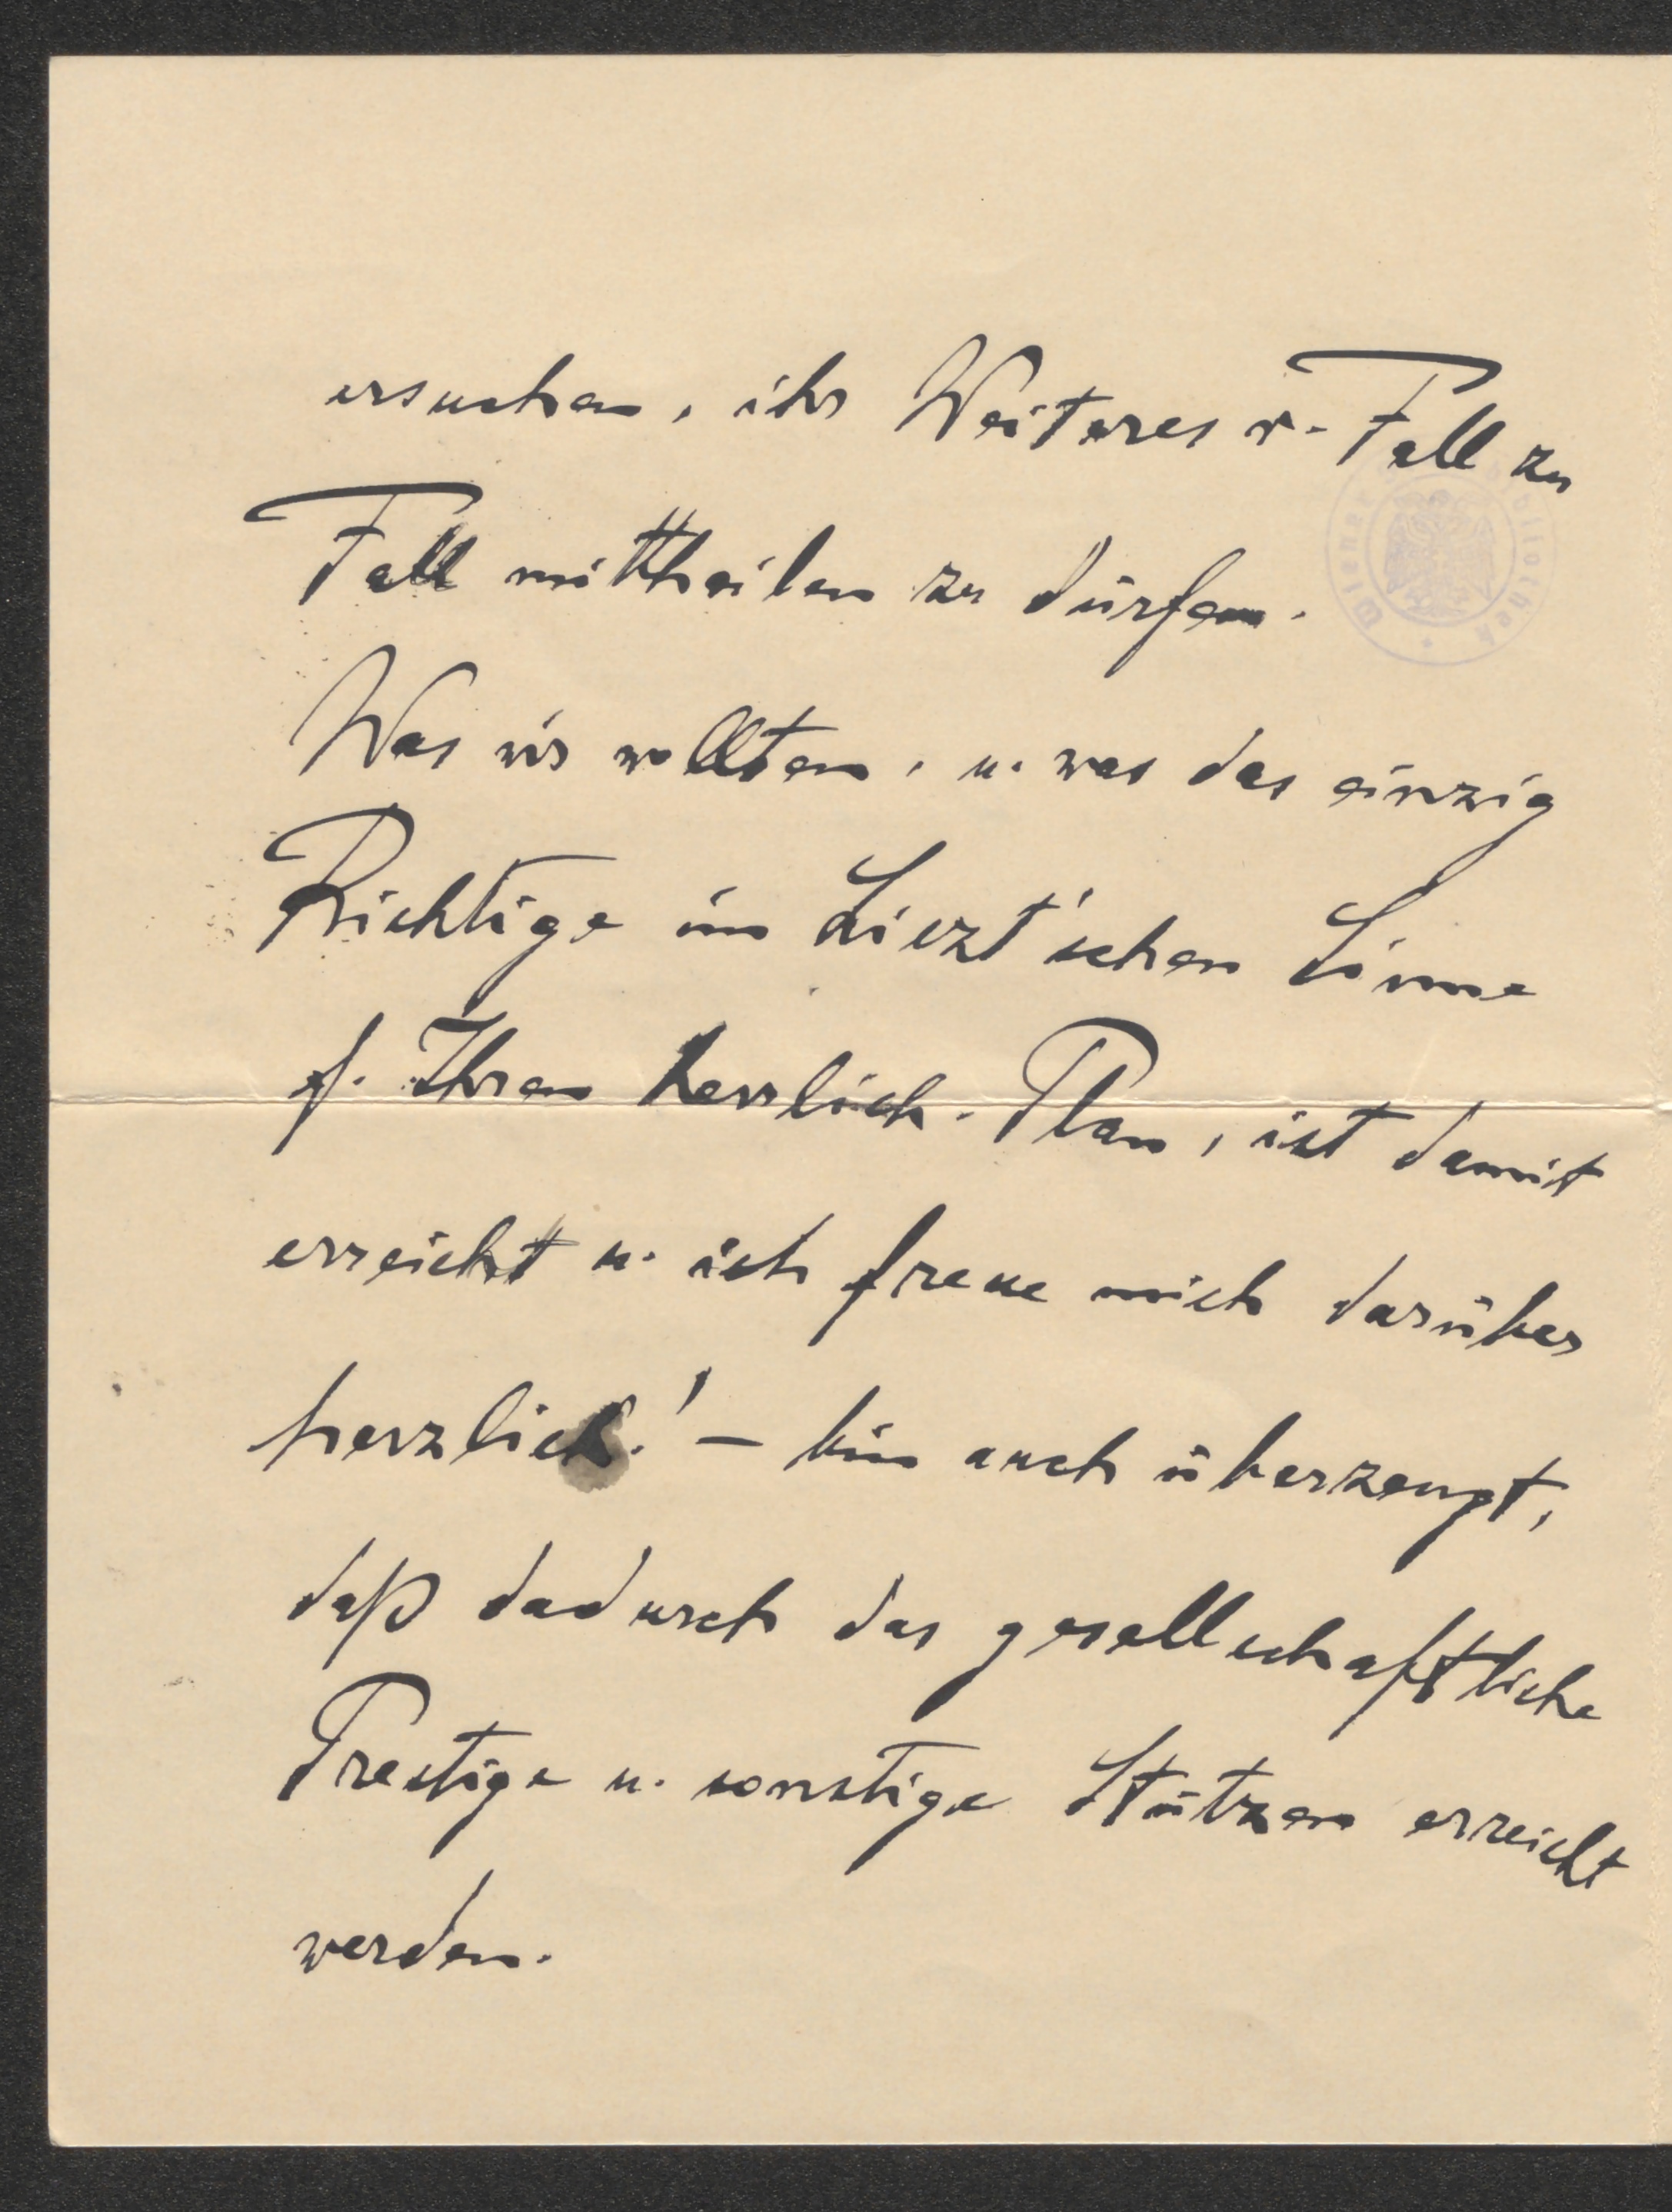 ersuchen, ihr Weiteres v. Fall zu
Fall mittheilen zu dürfen.
Was wir wollten, u. was das einzig
Richtige im Liszt'schen Sinne
f. Ihren herrlich. Plan, ist damit
erreicht u. ich freue mich darüber
herzlich! – bin auch überzeugt,
daß dadurch das gesellschaftliche
Prestige u. sonstige Stützen erreicht
werden.